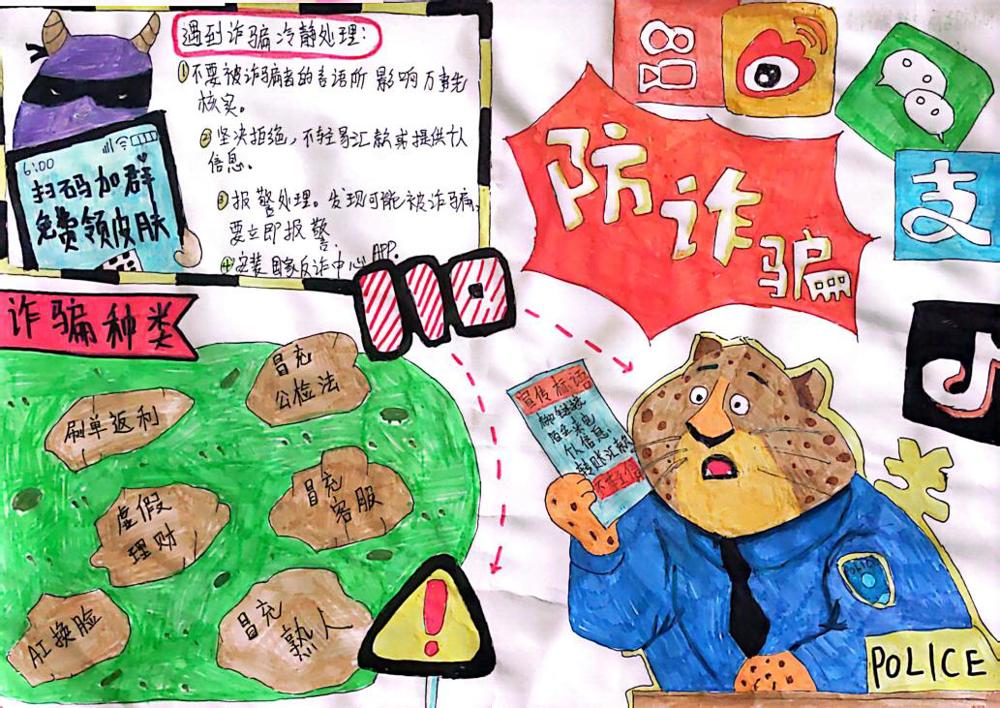 遇到诈骗冷静处理:
①不要被诈骗者的言语所影响万事先
核实。
②坚决拒绝,不轻易汇款或提供个人
信息。
③报警处理。发现可能被诈骗,
要立即报警。
④安装国家反诈中心APP.
6:00
扫码加群
免费领皮肤
防诈骗
支
110
诈骗种类
冒充
公检法
刷单返利
冒充
客服
虚假
理财
AI换脸
冒充
熟人
宣传标语
陌生红包
个人信息,
转账汇款
POLICE
POLICE